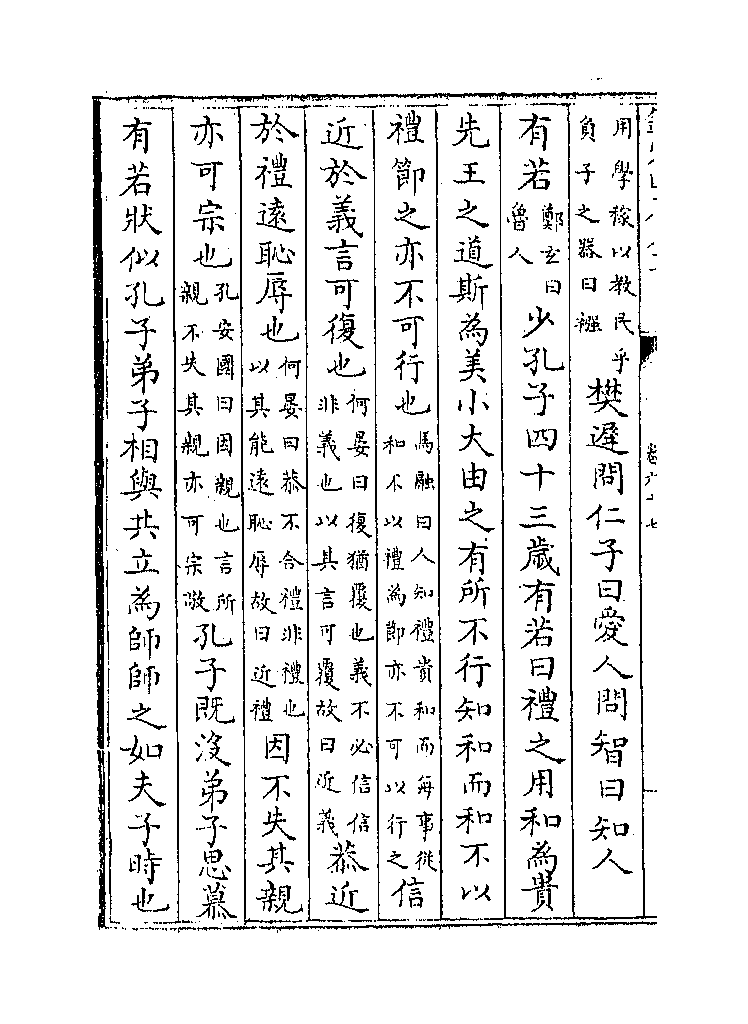 卷六十七
用學稼以教民乎負子之器曰襁樊遲問仁子曰愛人問智曰知人
有若鄭玄曰魯人少孔子四十三歲有若曰禮之用和為貴
先王之道斯為美小大由之有所不行知和而和不以
禮節之亦不可行也馬融曰人知禮貴和而每事從和不以禮為節亦不可以行之信
近於義言可復也何晏曰復猶覆也義不必信信非義也以其言可覆故曰近義恭近
於禮遠恥辱也何晏曰恭不合禮非禮也以其能遠恥辱故曰近禮因不失其親
亦可宗也孔安國曰因親也言所親不失其親亦可宗敬孔子既沒弟子思慕
有若狀似孔子弟子相與共立為師師之如夫子時也